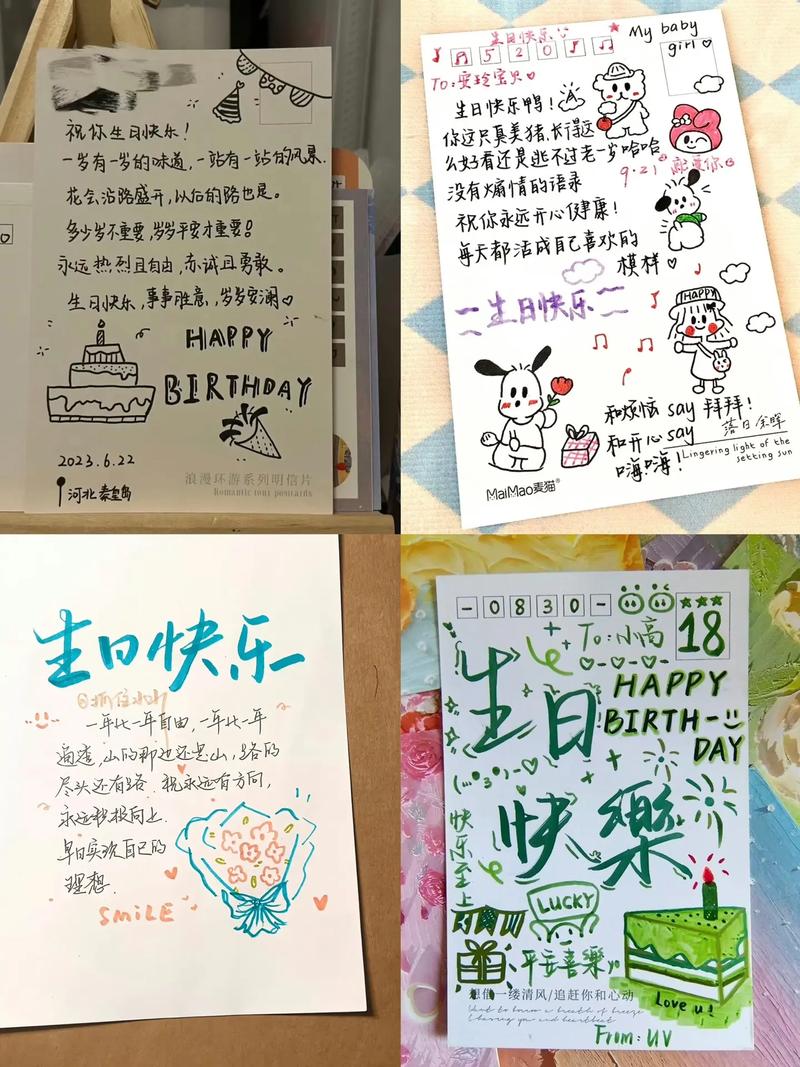 祝你生日快乐!
一岁有一岁的味道,一站有一站的风景.
花会沿路盛开,以后的路也是。
多少岁不重要,岁岁平安才重要!
永远热烈且自由,亦诚且勇敢。
生日快乐,事事胜意,岁岁安澜♡
HAPPY
BIRTHDAY
2023.6.22
河北秦皇岛
浪漫环游系列明信片
Romantic tour postcards
生日快乐
520
My baby
girl ♡
To:安玲宝贝♡
生日快乐鸭!
你这只真美猪,长得这
么好看还是逃不过老一岁哈哈
9.21
没有煽情的语录
祝你永远开心健康!
每天都活成自己喜欢的
模样♡
生日快乐
HAPPY
和烦恼 say 拜拜!
和开心 say
嗨嗨!
落日余晖
Lingering light of the
setting sun
MaiMao麦猫®
生日快乐
一年比一年自由,一年比一年
通透,山的那边还是山,路的
尽头还有路 祝永远有方向,
永远积极向上.
早日实现自己的
理想.
SMILE
-0830-
To:小高
18
生日
HAPPY
BIRTH-
DAY
快樂
快乐至上
LUCKY
平安喜樂
想借一缕清风/追赶你和心动
Love u!
From:UV